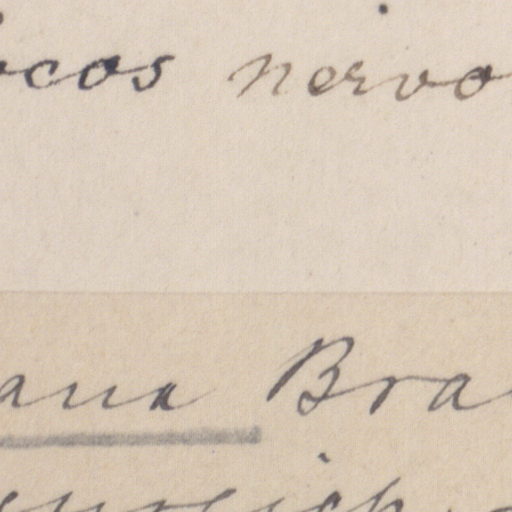 ocos nervo
ana Bra